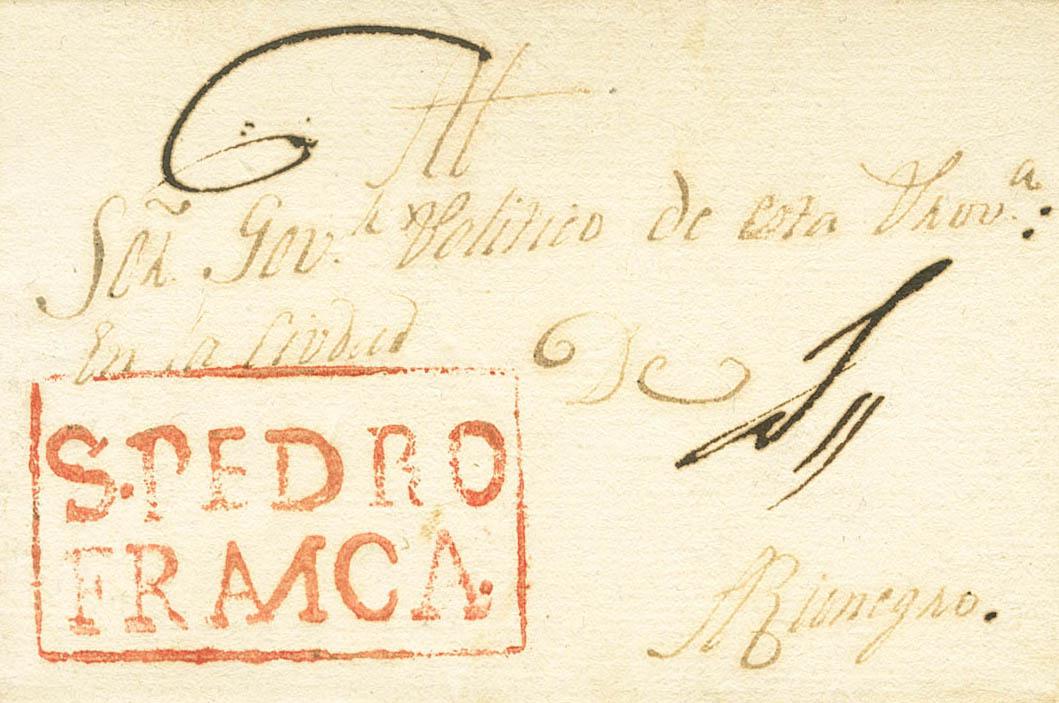 Al
Señ.r Gov.r Politico de esta Prov.a:
En la Ciudad De
S. PEDRO
FRANCA.
Rionegro.